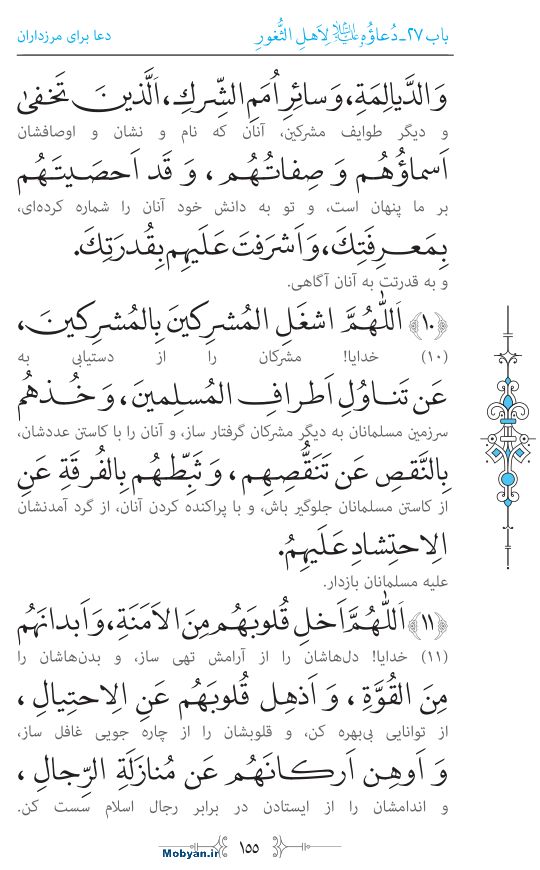 باب ۲۷ـ دُعاؤُهُ علیه‌السلام لِاَهلِ الثُّغورِ
دعا برای مرزداران
وَ الدَّيالِمَةِ، وَ سائِرِ اُمَمِ الشِّركِ، اَلَّذينَ تَخفىٰ
و دیگر طوایف مشرکین، آنان که نام و نشان و اوصافشان
اَسماؤُهُم وَ صِفاتُهُم، وَ قَد اَحصَيتَهُم
بر ما پنهان است، و تو به دانش خود آنان را شماره کرده‌ای،
بِمَعرِفَتِكَ، وَ اَشرَفتَ عَلَيهِم بِقُدرَتِكَ.
و به قدرتت به آنان آگاهی.
﴿۱۰﴾ اَللّٰهُمَّ اشغَلِ المُشرِكينَ بِالمُشرِكينَ،
(۱۰) خدایا! مشرکان را از دستیابی به
عَن تَناوُلِ اَطرافِ المُسلِمينَ، وَ خُذهُم
سرزمین مسلمانان به دیگر مشرکان گرفتار ساز، و آنان را با کاستن عددشان،
بِالنَّقصِ عَن تَنَقُّصِهِم، وَ ثَبِّطهُم بِالفُرقَةِ عَنِ
از کاستن مسلمانان جلوگیر باش، و با پراکنده کردن آنان، از گرد آمدنشان
الِاحتِشادِ عَلَيهِمُ.
علیه مسلمانان بازدار.
﴿۱۱﴾ اَللّٰهُمَّ اَخلِ قُلوبَهُم مِنَ الاَمَنَةِ، وَ اَبدانَهُم
(۱۱) خدایا! دل‌هاشان را از آرامش تهی ساز، و بدن‌هاشان را
مِنَ القُوَّةِ، وَ اَذهِل قُلوبَهُم عَنِ الِاحتِيالِ،
از توانایی بی‌بهره کن، و قلوبشان را از چاره جویی غافل ساز،
وَ اَوهِن اَركانَهُم عَن مُنازَلَةِ الرِّجالِ،
و اندامشان را از ایستادن در برابر رجال اسلام سست کن.
۱۵۵
Mobyan.ir